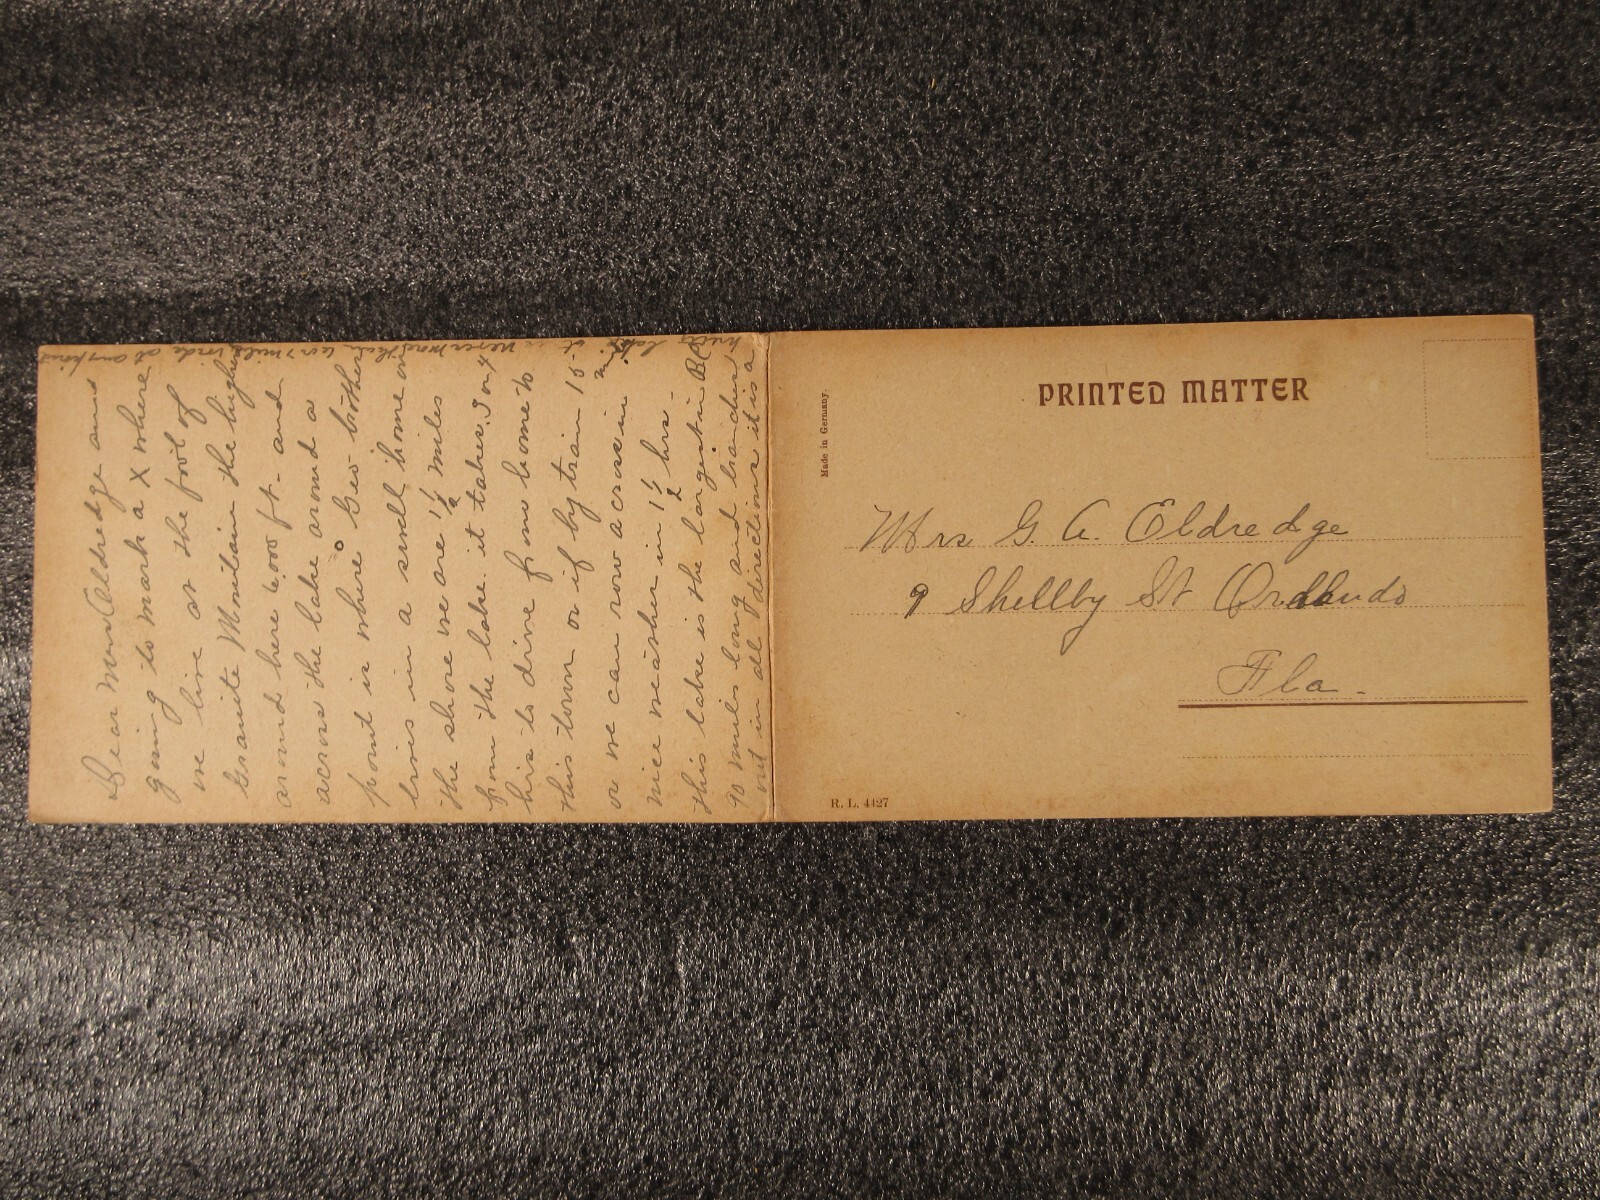 Dear Mrs Aldredge and
going to mark a X where
we live at the foot of
Granite Mountain the highest
around here 6.000 ft. and
across the lake around a
point is where Geo brother
lives in a small home on
the shore we are 1 1/2 miles
from the lake. it takes 3 or 4
hrs to drive from home to
this town or if by train 15 m
or we can row across in
nice weather in 1 1/2 hrs.
This lake is the largest in BC
90 miles long and branches
out in all directions it is a
lake. it is never more than two miles wide at any point
Made in Germany.
PRINTED MATTER
Mrs G. A. Eldredge
9 Shellby St Orlando
Fla.
R. L. 4427